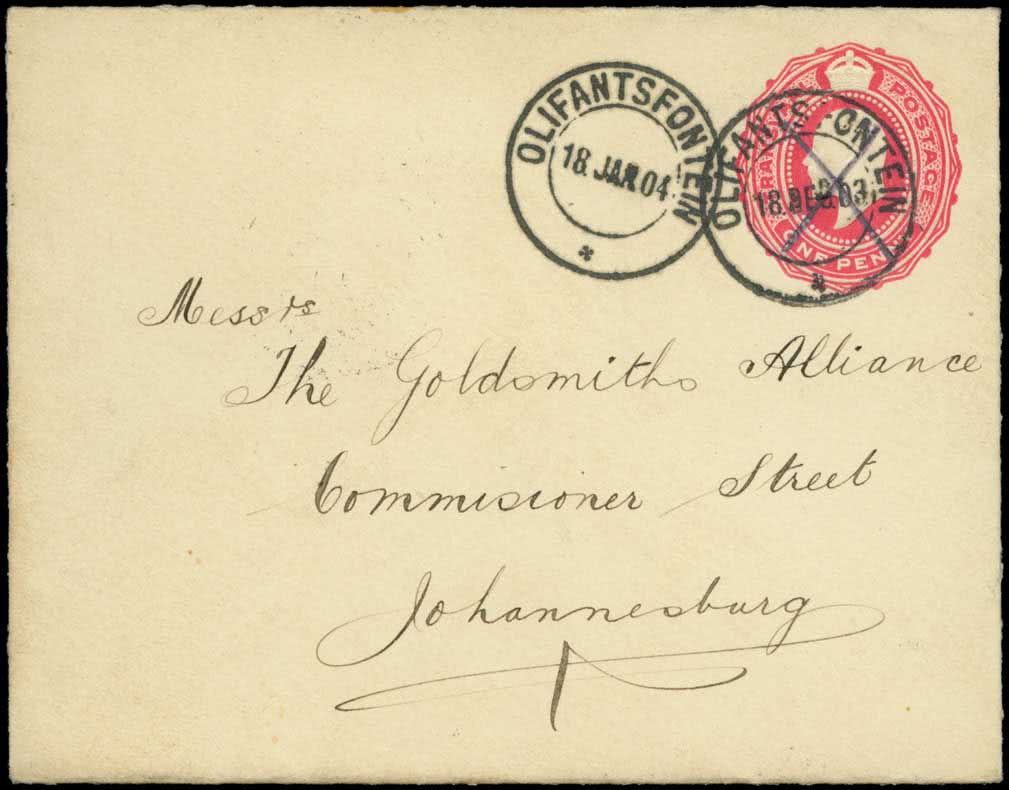 OLIFANTSFONTEIN
18 JAN 04
*
OLIFANTSFONTEIN
18 DEC 03
*
POSTAGE
ONE PENNY
Messrs
The Goldsmiths Alliance
Commisioner Street
Johannesburg